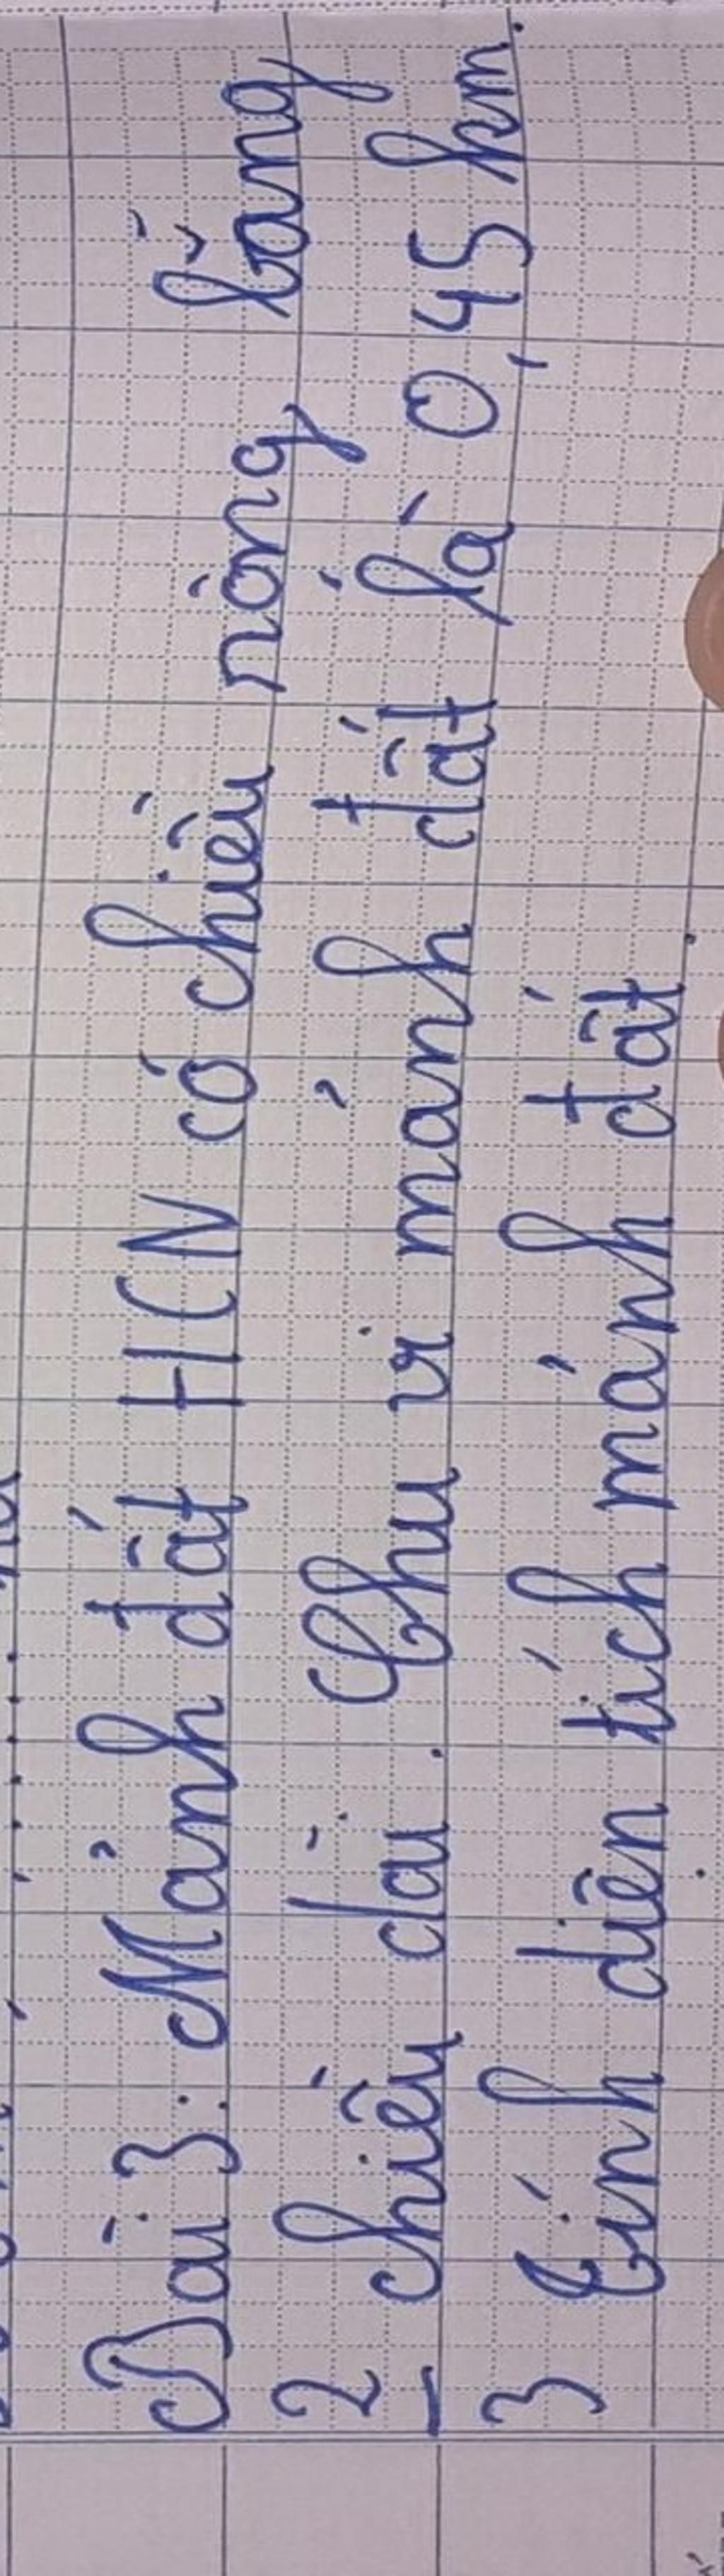 Bài 3: Mảnh đất HCN có chiều rộng bằng
2/3 chiều dài. Chu vi mảnh đất là 0,45 km.
Tính diện tích mảnh đất.